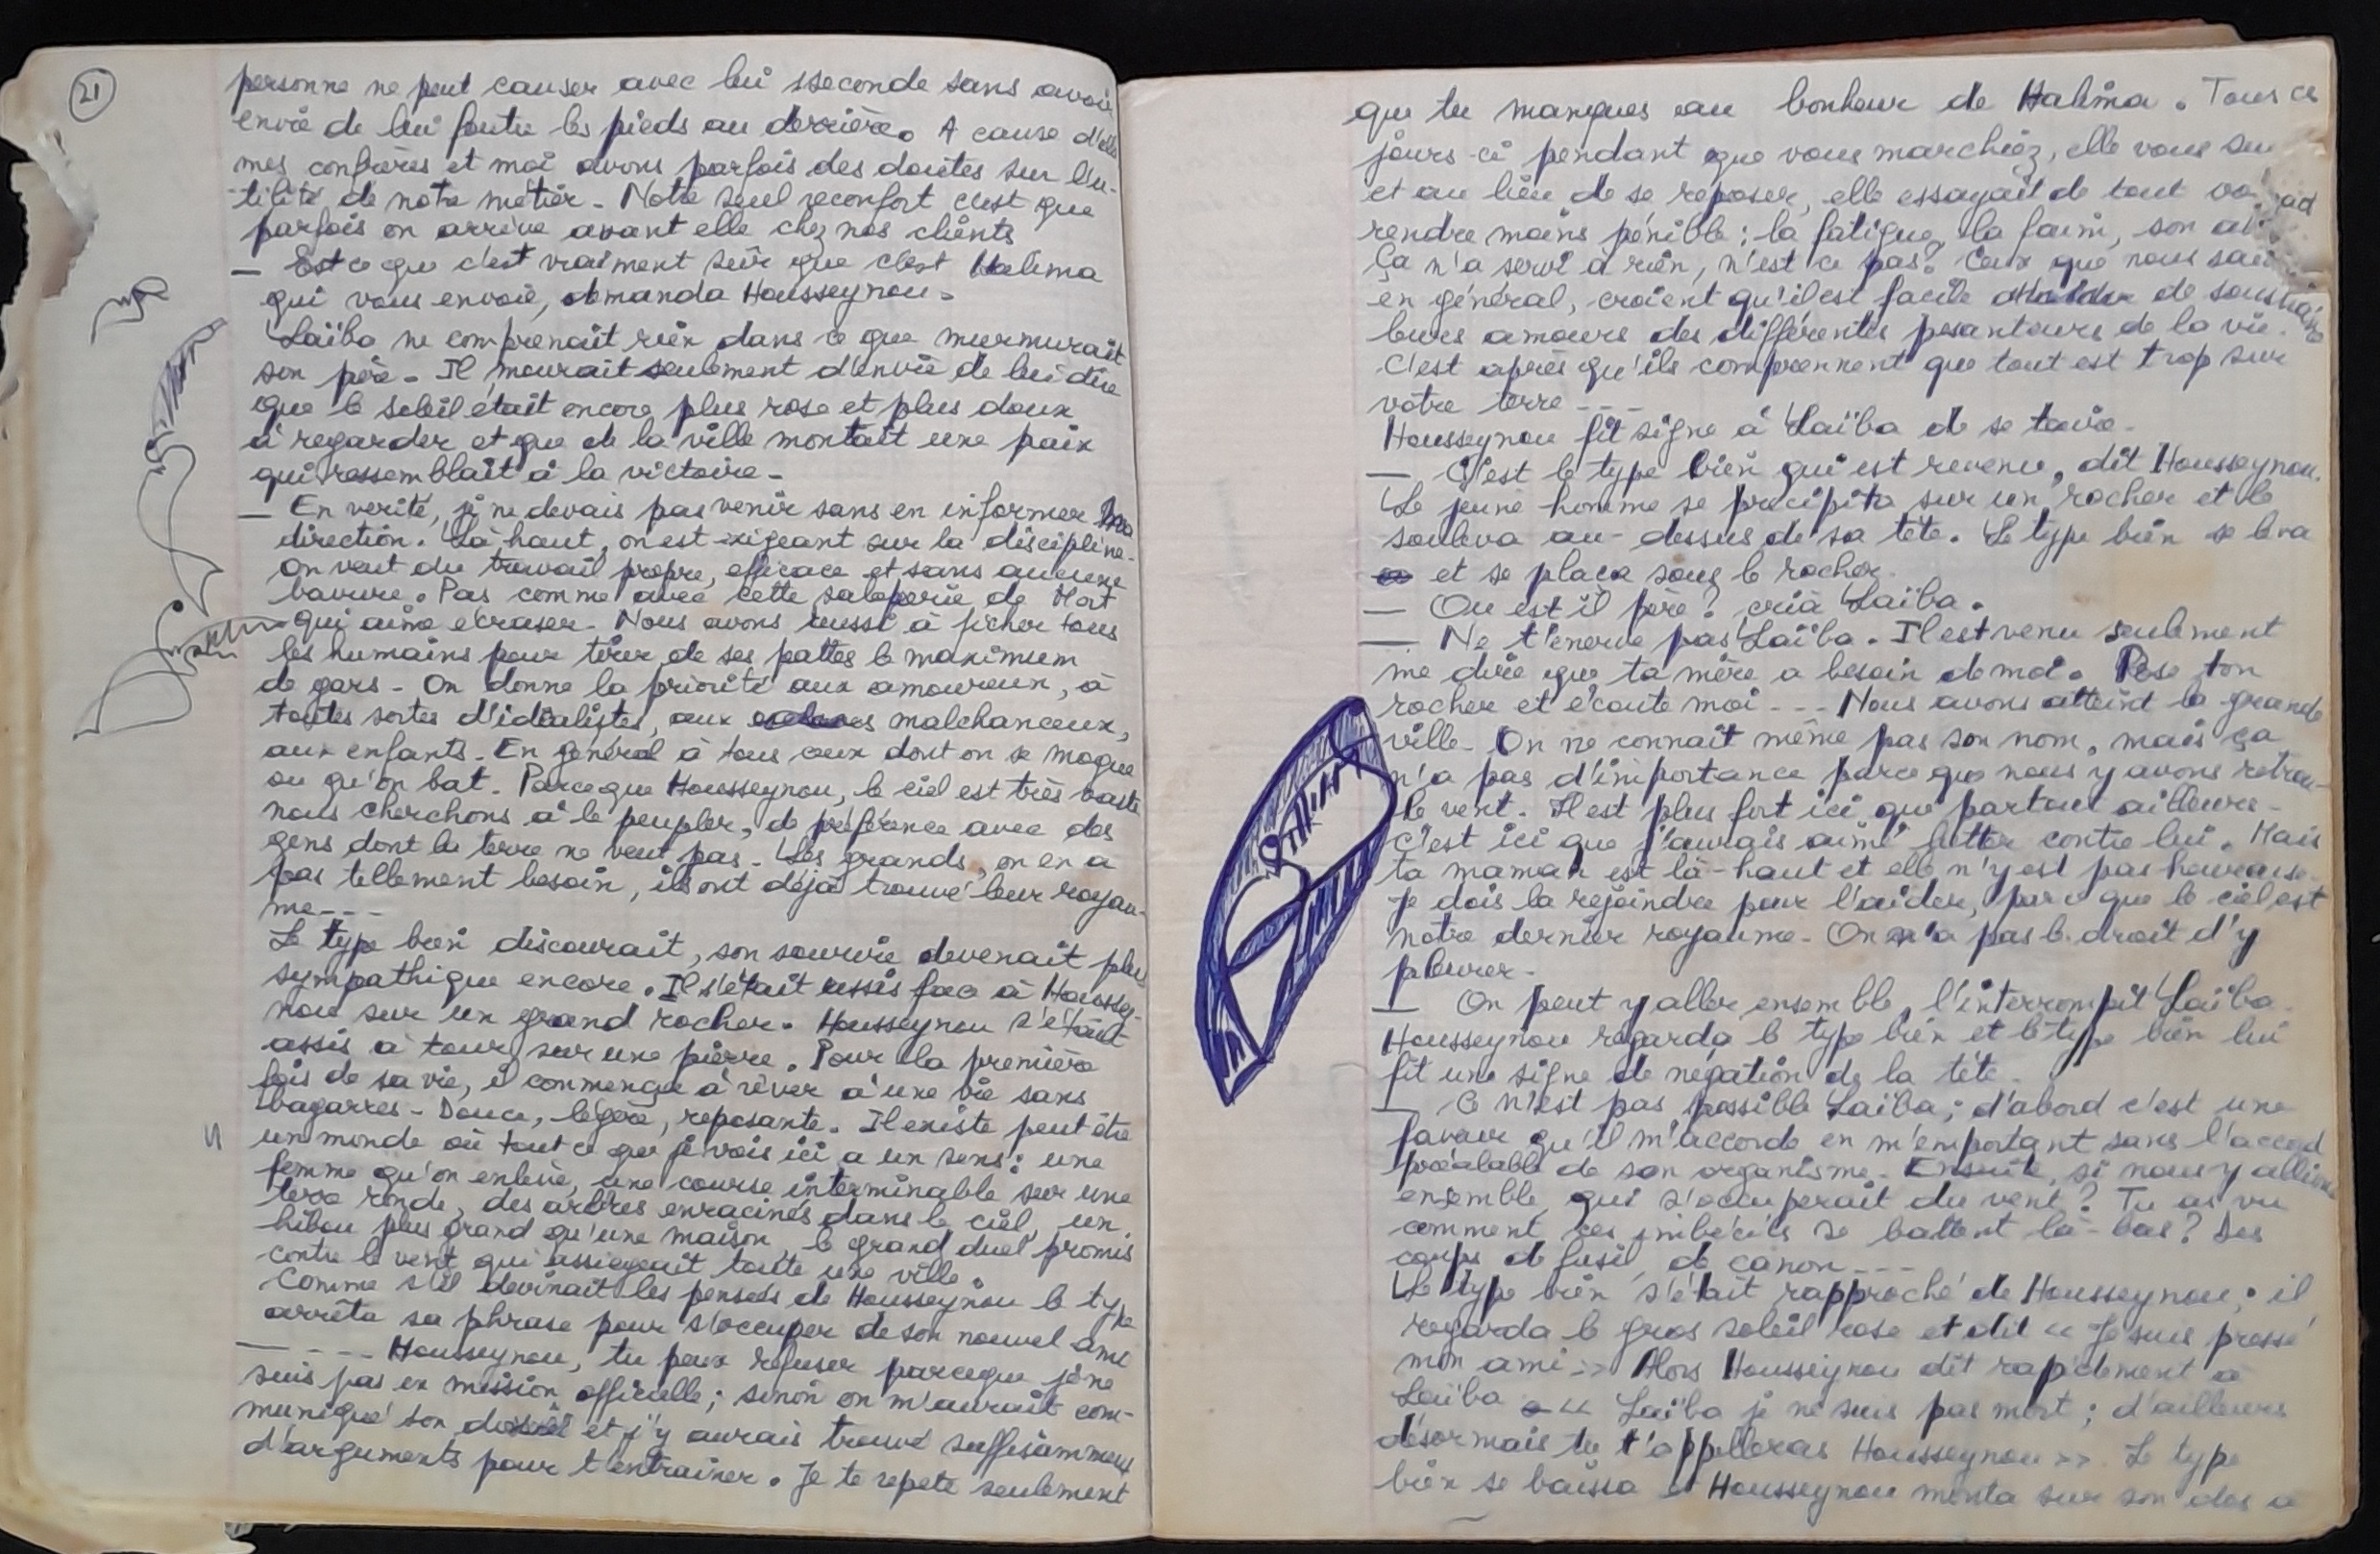 21
personne ne peut causer avec lui 1seconde sans avoir
envie de lui foutre les pieds au derrière. A cause d'elle
mes confrères et moi avons parfois des doutes sur l'u-
tilité de notre métier - Notre seul reconfort c'est que
parfois on arrive avant elle chez nos clients
— Est ce que c'est vraiment sûr que c'est Halima
qui vous envoie, demanda Housseynou -
Laïba ne comprenait rien dans ce que murmurait
son père - Il mourait seulement d'envie de lui dire
que le soleil était encore plus rose et plus doux
à regarder et que de la ville montait une paix
qui ressemblait à la victoire -
— En verité, je ne devais pas venir sans en informer ma
direction. Là haut, on est exigeant sur la discipline -
On veut du travail propre, efficace et sans aucune
bavure. Pas comme avec cette saloperie de Mort
qui aime écraser - Nous avons aussi à ficher tous
les humains pour tirer de ses pattes le maximum
de gars - On donne la priorité aux amoureux, à
toutes sortes d'idéalistes, aux malchanceux,
aux enfants - En général à tous ceux dont on se moque
ou qu'on bat. Parceque Housseynou, le ciel est très vaste
nous cherchons à le peupler, de préférence avec des
gens dont la terre ne veut pas - Les grands, on en a
pas tellement besoin, ils ont déjà trouvé leur royau-
me - - -
Le type bien discourait, son sourire devenait plus
sympathique encore. Il s'était assis face à Houssey-
nou sur un grand rocher. Housseynou s'était
assis à tour sur une pierre. Pour la première
fois de sa vie, il commença à rêver à une vie sans
bagarres - Douce, légère, reposante. Il existe peut être
un monde où tout ce que je vois ici a un sens : une
femme qu'on enlève, une course interminable sur une
terre ronde, des arbres enracinés dans le ciel, un
hibou plus grand qu'une maison, le grand duel promis
contre le vent qui assiegeait toute une ville.
Comme s'il devinait les pensées de Housseynou le type
arrêta sa phrase pour s'occuper de son nouvel ami
— - - - Housseynou, tu peux refuser parceque je ne
suis pas en mission officielle ; sinon on m'aurait com-
muniqué ton dossier et j'y aurais trouvé suffisamment
d'arguments pour t'entrainer. Je te repete seulement
que tu manques au bonheur de Halima. Tous ces
jours-ci pendant que vous marchiez, elle vous
et au lieu de se reposer, elle essayait de tout
rendre moins pénible : la fatigue, la faim, son
Ça n'a servi à rien, n'est ce pas? Ceux que nous
en général, croient qu'il est facile de soustraire
leurs amours des différentes pesanteurs de la vie.
C'est après qu'ils comprennent que tout est trop sur
votre terre - - -
Housseynou fit signe à Laïba de se taire -
— C'est le type bien qui est revenu, dit Housseynou.
Le jeune homme se précipita sur un rocher et le
souleva au-dessus de sa tête. Le type bien se leva
et se plaça sous le rocher.
— Ou est il père ? cria Laïba.
— Ne t'enerve pas Laïba. Il est venu seulement
me dire que ta mère a besoin de moi. Pose ton
rocher et écoute moi - - - Nous avons atteint la grande
ville - On ne connait même pas son nom, mais ça
n'a pas d'importance parce que nous y avons retrou-
le vent. Il est plus fort ici que partout ailleurs -
C'est ici que j'aurais aimé lutter contre lui. Mais
ta maman est là-haut et elle n'y est pas heureuse -
Je dois la rejoindre pour l'aider, parce que le ciel est
notre dernier royaume - On n'a pas le droit d'y
pleurer -
— On peut y aller ensemble, l'interrompit Laïba.
Housseynou regarda le type bien et le type bien lui
fit une signe de négation de la tête -
— Ce n'est pas possible Laïba ; d'abord c'est une
faveur qu'il m'accorde en m'emportant sans l'accord
préalable de son organisme - Ensuite, si nous y allions
ensemble qui s'occuperait du vent ? Tu as vu
comment ces imbéciles se battent là-bas ? Des
coups de fusil, de canon - - -
Le type bien s'était rapproché de Housseynou ; il
regarda le gros soleil rose et dit « Je suis pressé
mon ami » Alors Housseynou dit rapidement à
Laïba « Laïba je ne suis pas mort ; d'ailleurs
désormais tu t'appelleras Housseynou ». Le type
bien se baissa et Housseynou monta sur son dos à